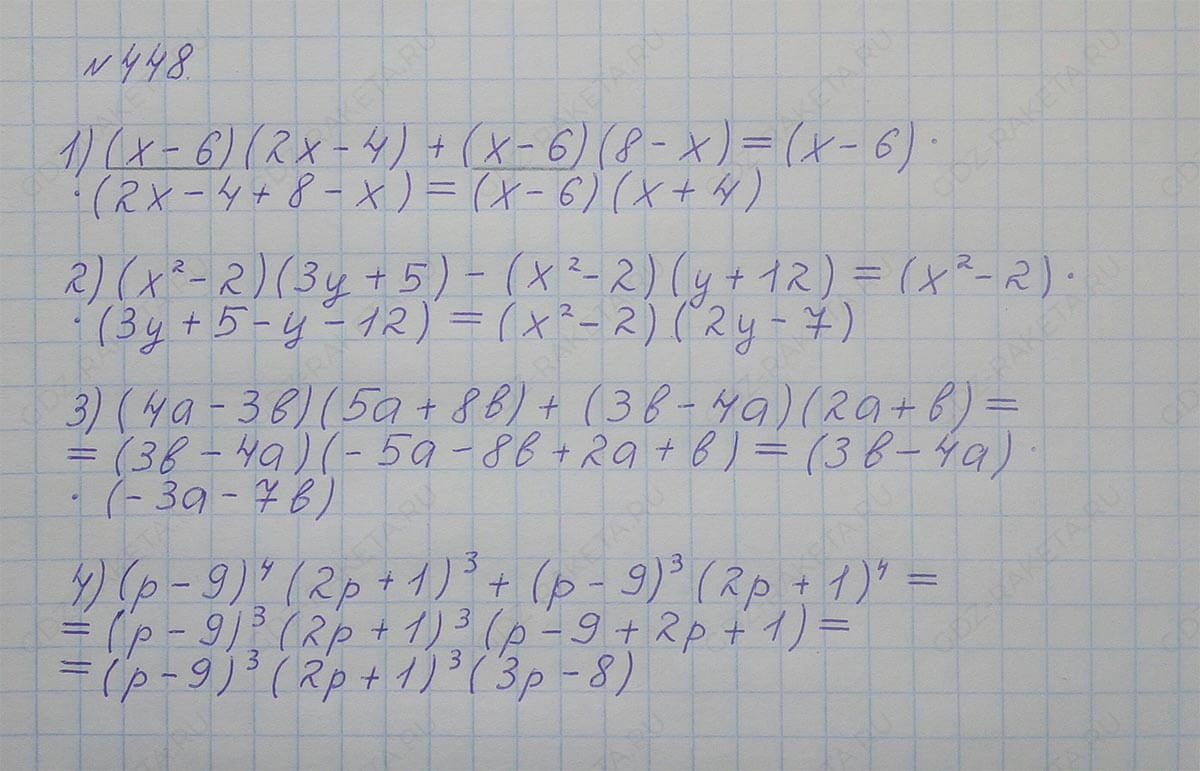 №448.
1) (x – 6)(2x – 4) + (x – 6)(8 – x) = (x – 6) ·
· (2x – 4 + 8 – x) = (x – 6)(x + 4)
2) (x² – 2)(3y + 5) – (x² – 2)(y + 12) = (x² – 2) ·
· (3y + 5 – y – 12) = (x² – 2)(2y – 7)
3) (4a – 3в)(5a + 8в) + (3в – 4a)(2a + в) =
= (3в – 4a)(– 5a – 8в + 2a + в) = (3в – 4a) ·
· (– 3a – 7в)
4) (p – 9)⁴ (2p + 1)³ + (p – 9)³ (2p + 1)⁴ =
= (p – 9)³ (2p + 1)³ (p – 9 + 2p + 1) =
= (p – 9)³ (2p + 1)³ (3p – 8)
GDZ-RAKETA.RU